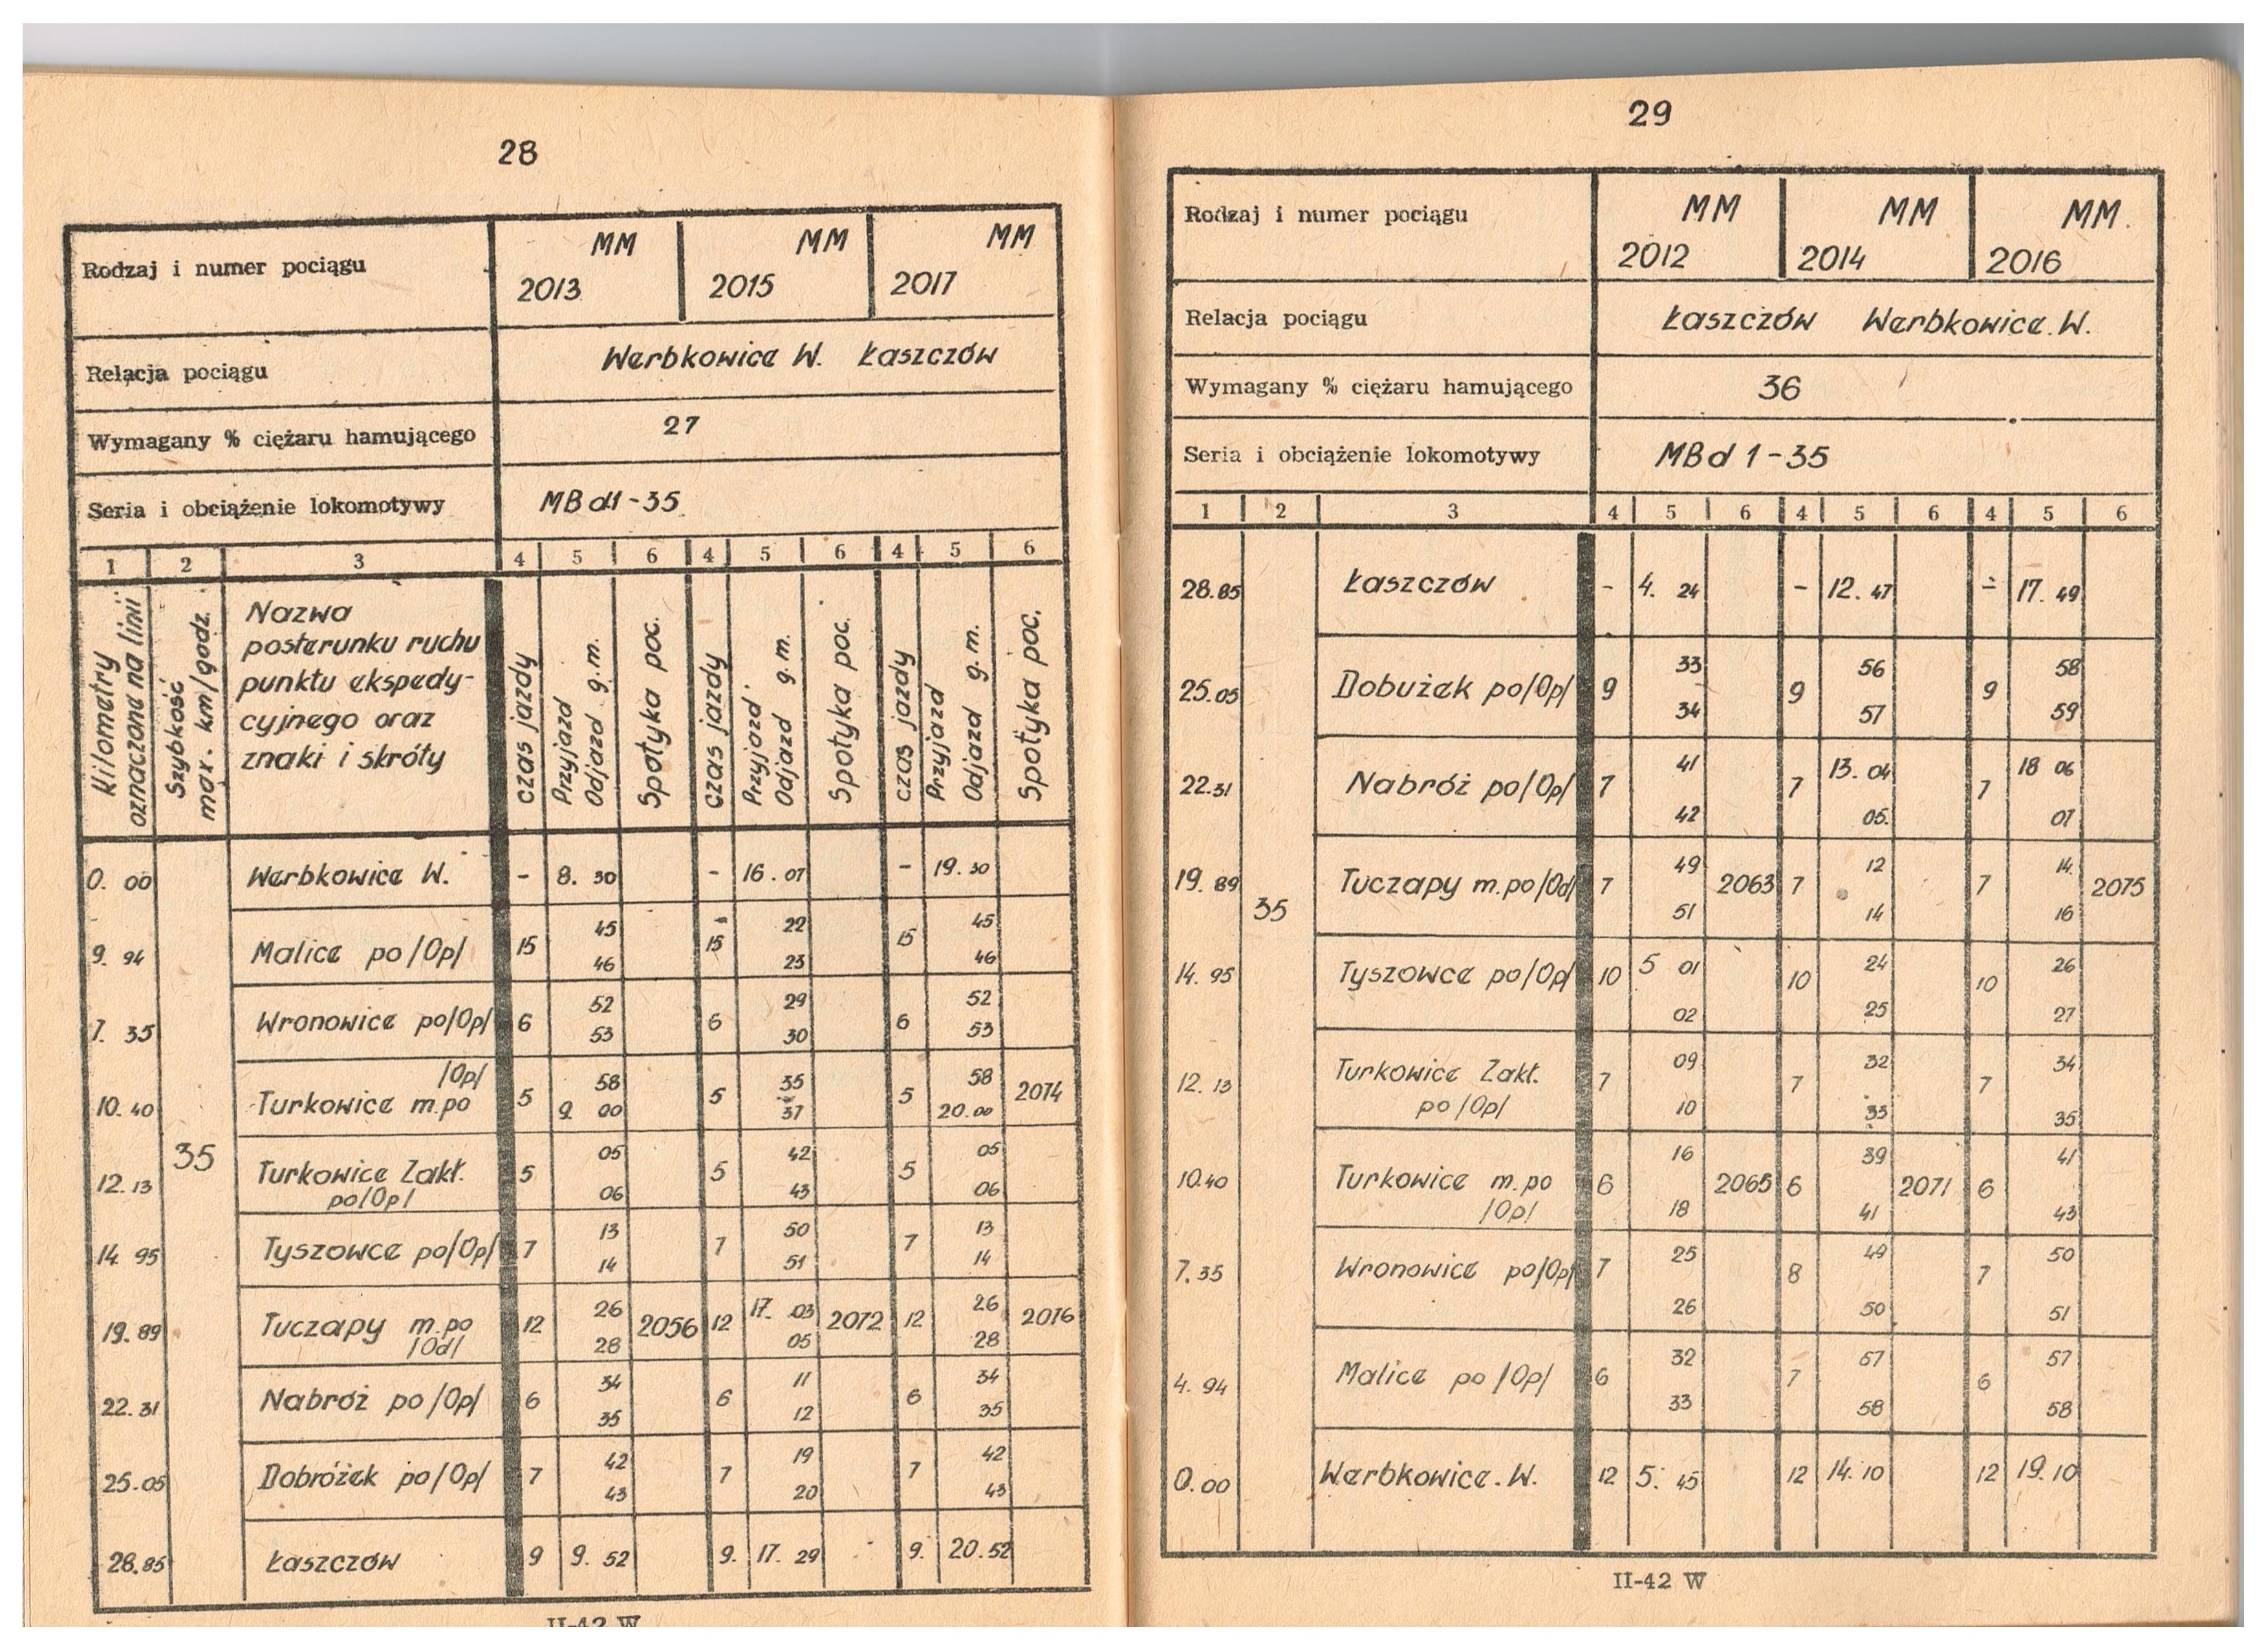 28
Rodzaj i numer pociągu MM 2013 MM 2015 MM 2017
Relacja pociągu Werbkowice W. Łaszczów
Wymagany % ciężaru hamującego 27
Seria i obciążenie lokomotywy MBd1-35
1 2 3 4 5 6 4 5 6 4 5 6
Kilometry oznaczone na linii
Szybkość max. km/godz.
Nazwa
posterunku ruchu
punktu ekspedy-
cyjnego oraz
znaki i skróty
czas jazdy Przyjazd Odjazd g.m. Spotyka poc. czas jazdy Przyjazd Odjazd g.m. Spotyka poc. czas jazdy Przyjazd Odjazd g.m. Spotyka poc.
0.00 Werbkowice W. - 8.30 - 16.07 - 19.30
9.94 Malice po/Op/ 15 45 46 15 22 23 15 45 46
7.35 Wronowice po/Op/ 6 52 53 6 29 30 6 52 53
10.40 /Op/ Turkowice m.po 5 58 9 00 5 35 37 5 58 20.00 2074
35
12.13 Turkowice Zakł. po/Op/ 5 05 06 5 42 43 5 05 06
14 95 Tyszowce po/Op/ 7 13 14 7 50 51 7 13 14
19.89 Tuczapy m.po /Od/ 12 26 28 2056 12 17. 03 05 2072 12 26 28 2076
22.31 Nabróż po/Op/ 6 34 35 6 11 12 6 34 35
25.05 Dobróżek po/Op/ 7 42 43 7 19 20 7 42 43
28.85 Łaszczów 9 9.52 9. 17.29 9. 20.52
II-42 W
29
Rodzaj i numer pociągu MM 2012 MM 2014 MM. 2016
Relacja pociągu Łaszczów Werbkowice.W.
Wymagany % ciężaru hamującego 36
Seria i obciążenie lokomotywy MBd 1-35
1 2 3 4 5 6 4 5 6 4 5 6
28.85 Łaszczów - 4. 24 - 12.47 - 17.49
25.05 Dobużek po/Op/ 9 33 34 9 56 57 9 58 59
22.31 Nabróż po/Op/ 7 41 42 7 13.04 05. 7 18 06 07
19.89 Tuczapy m.po/Od/ 7 49 51 2063 7 12 14 7 14. 16 2075
35
14.95 Tyszowce po/Op/ 10 5 01 02 10 24 25 10 26 27
12.13 Turkowice Zakł. po/Op/ 7 09 10 7 32 33 7 34 35
10.40 Turkowice m.po /Op/ 6 16 18 2065 6 39 41 2071 6 41 43
7.35 Wronowice po/Op/ 7 25 26 8 49 50 7 50 51
4.94 Malice po/Op/ 6 32 33 7 57 58 6 57 58
0.00 Werbkowice.W. 12 5.45 12 14.10 12 19.10
II-42 W